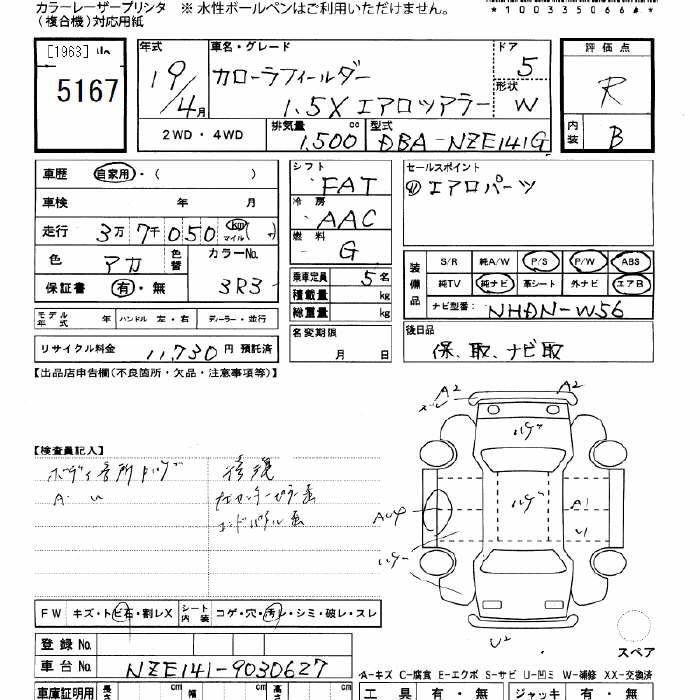 カラーレーザープリンタ ※ 水性ボールペンはご利用いただけません。
(複合機)対応用紙
*100335066#*
[1963]
5167
年式 19/4月
車名・グレード カローラフィールダー
1.5X エアロツアラー
ドア 5
形状 W
評価点 R
内装 B
2WD・4WD 排気量 1,500 cc 型式 DBA-NZE141G
車歴 自家用・( )
車検 年 月
走行 3万 7千 0 5 0 km マイル
色 アカ 色替 カラーNo. 3R3
保証書 有・無
シフト FAT
冷房 AAC
燃料 G
乗車定員 5名
積載量 kg
総重量 kg
セールスポイント
エアロパーツ
装備品 S/R 純A/W P/S P/W ABS
純TV 純ナビ 革シート 外ナビ エアB
ナビ型番: NHDN-W56
モデル年式 年 ハンドル 左・右 ディーラー・並行
リサイクル料金 11,730 円 預託済
名変期限 月 日
後日品
保、取、ナビ取
【出品店申告欄(不良箇所・欠品・注意事項等)】
【検査員記入】
A2
A2
A1
U1
U2
スペア
FW キズ・トビ石・割レX シート内装 コゲ・穴・汚レ・シミ・破レ・スレ
登録No.
車台No. NZE141-9030627
A-キズ C-腐食 E-エクボ S-サビ U-凹ミ W-補修 XX-交換済
車庫証明用 長さ cm 幅 cm 高さ cm
工具 有・無 ジャッキ 有・無